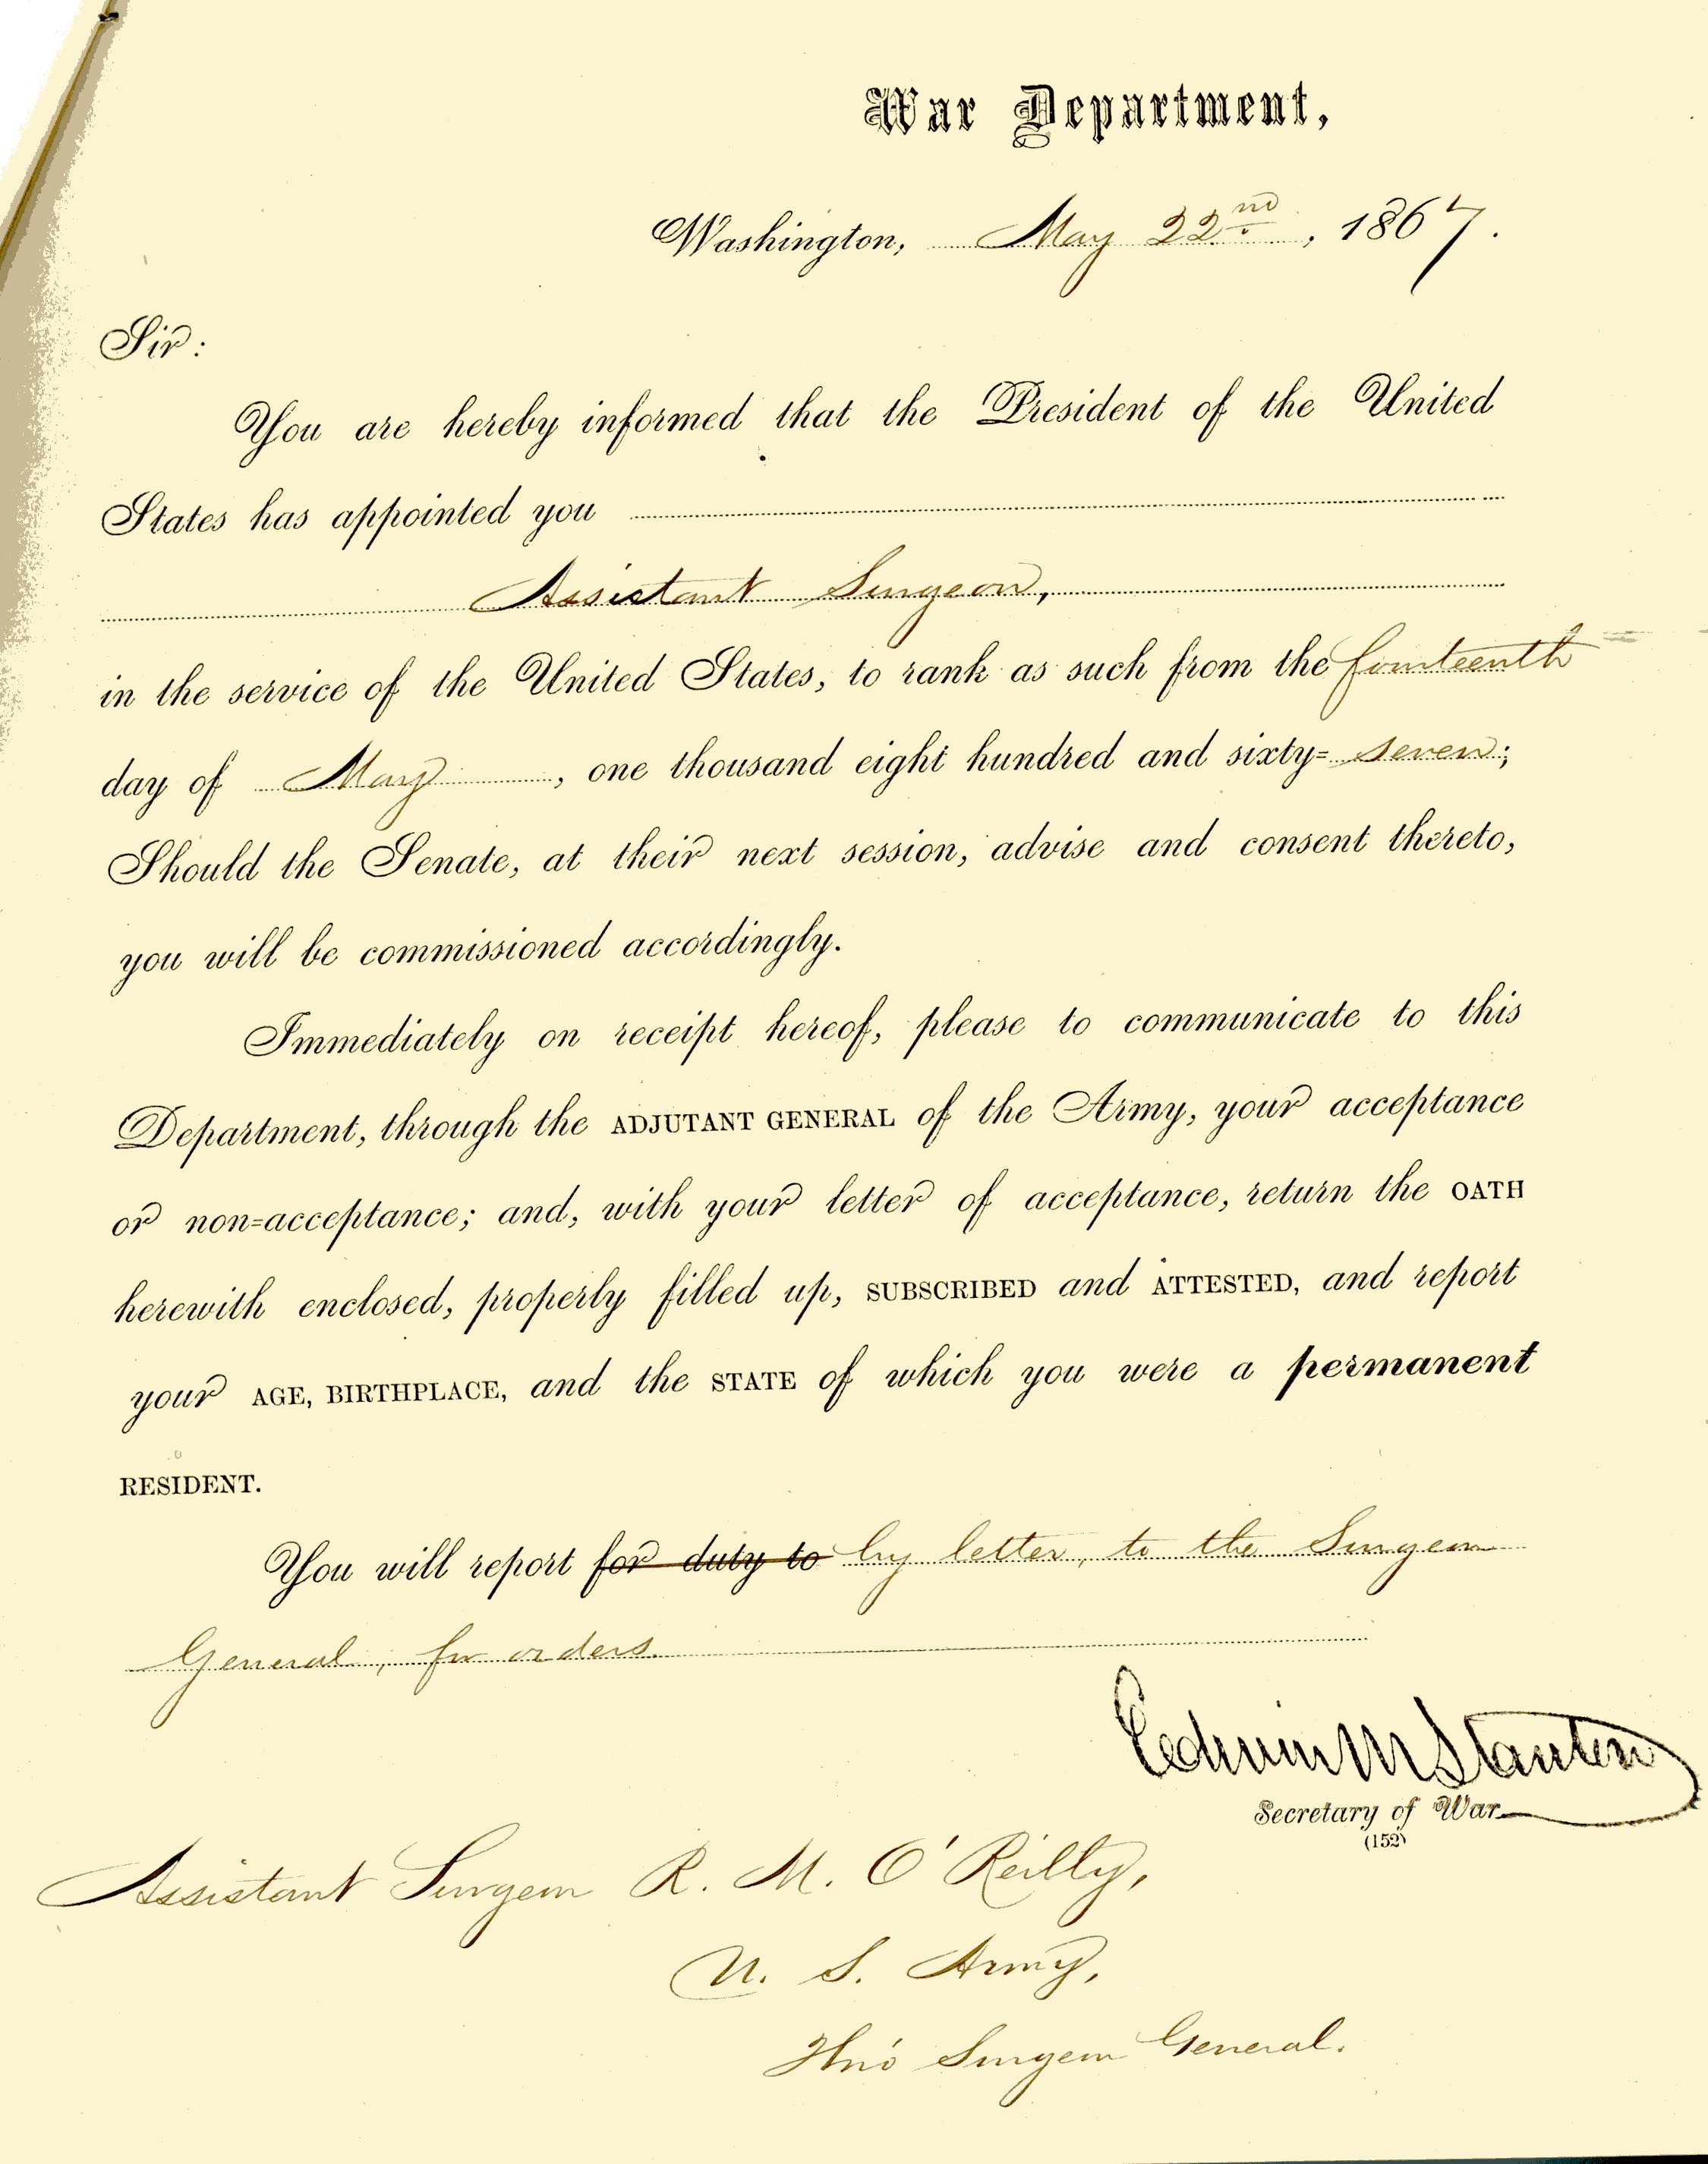 War Department,
Washington, May 22nd, 1867.
Sir:
You are hereby informed that the President of the United
States has appointed you
Assistant Surgeon,
in the service of the United States, to rank as such from the fourteenth
day of May, one thousand eight hundred and sixty=seven;
Should the Senate, at their next session, advise and consent thereto,
you will be commissioned accordingly.
Immediately on receipt hereof, please to communicate to this
Department, through the ADJUTANT GENERAL of the Army, your acceptance
or non=acceptance; and, with your letter of acceptance, return the OATH
herewith enclosed, properly filled up, SUBSCRIBED and ATTESTED, and report
your AGE, BIRTHPLACE, and the STATE of which you were a permanent
RESIDENT.
You will report for duty to by letter, to the Surgeon
General, for orders.
Edwin M Stanton
Secretary of War
(152)
Assistant Surgeon R. M. O'Reilly,
U. S. Army,
Thro' Surgeon General.